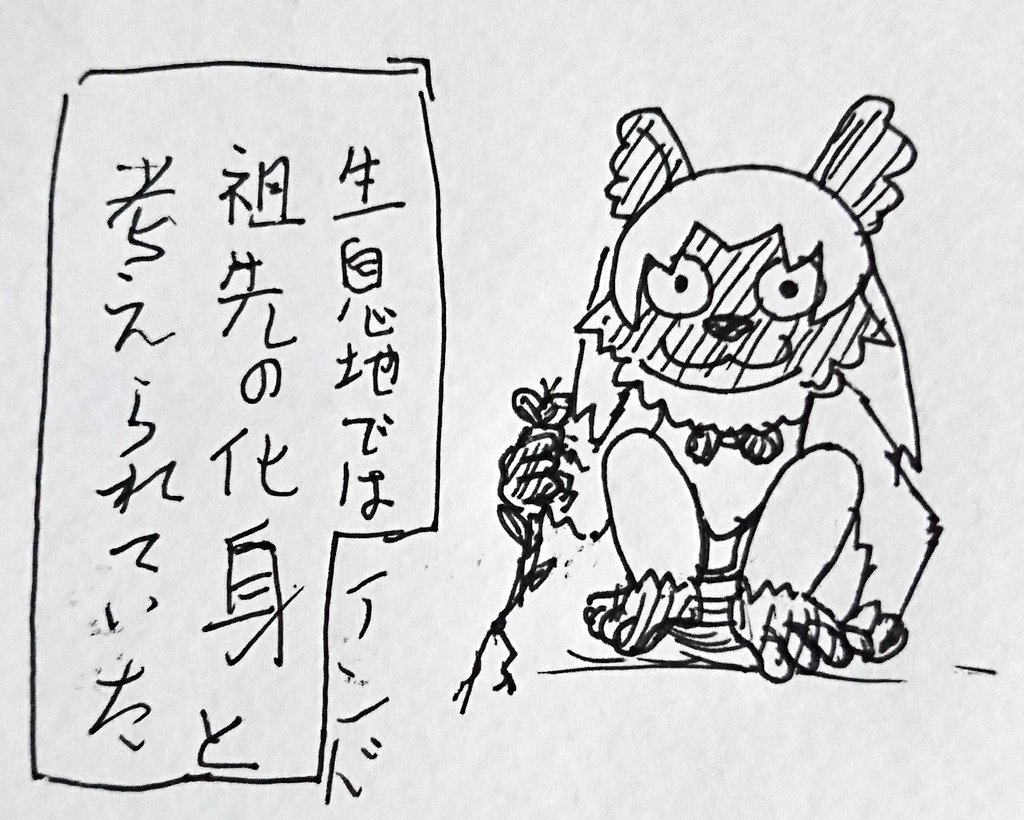 生息地では
インド
祖先の化身と
考えられていた